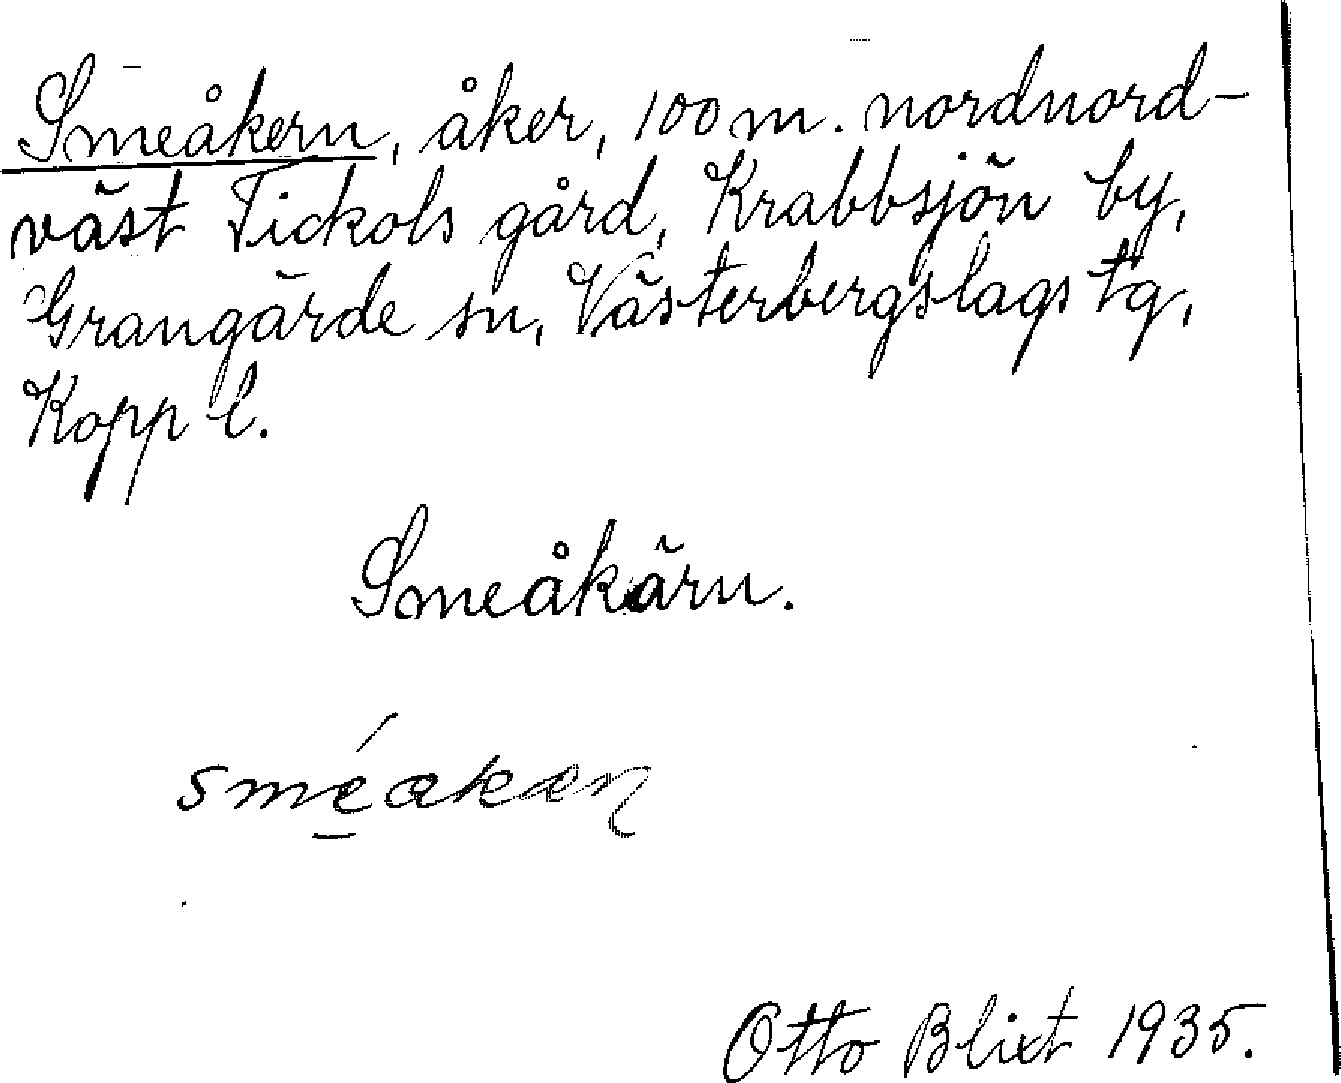 Smeåkern, åker, 100 m. nordnord-
väst Tickols gård, Krabbsjön by,
Grangärde sn, Västerbergslags tg,
Kopp l.
Smeåkärn.
Otto Blixt 1935.